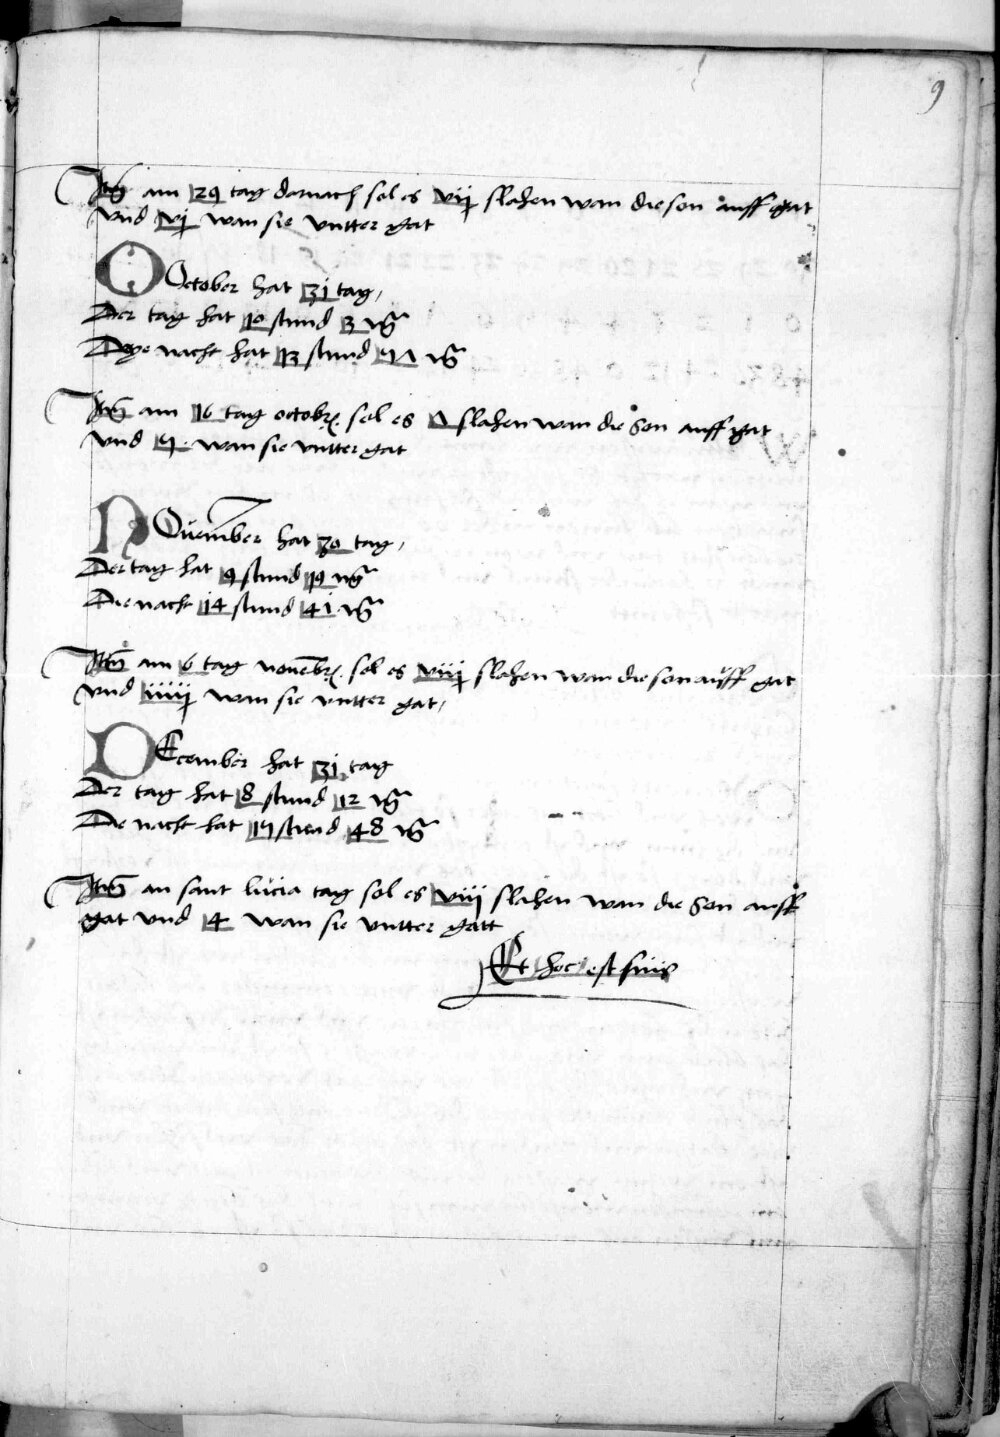 9
Itm̃ am 29 tag darnach sol es vij slahen wan die son auff gat
vnd vj wan sie vntter gat
OCtober hat 31 tag
Der tag hat 10 stund 3 mỹ
Dye nacht hat 13 stund 57 mỹ
Itm̃ am 16 tag octobr̃. sol es 7 slahen wan die son auff gat
vnd 5. wan sie vntter gat
NOuember hat 30 tag
Der tag hat 9 stund 19 mỹ
Die nacht 14 stund 41 mỹ
Itm̃ am 6 tag nouẽbr̃. sol es viij slahen wan die son auff gat
vnd iiij wan sie vntter gat
DEcember hat 31 tag
Der tag hat 8 stund 12 mỹ
Die nacht hat 15 stund 48 mỹ
Itm̃ an sant lucia tag sol es viij slahen wan die son auff
gat vnd 4 wan sie vntter gatt
Et hoc est finis